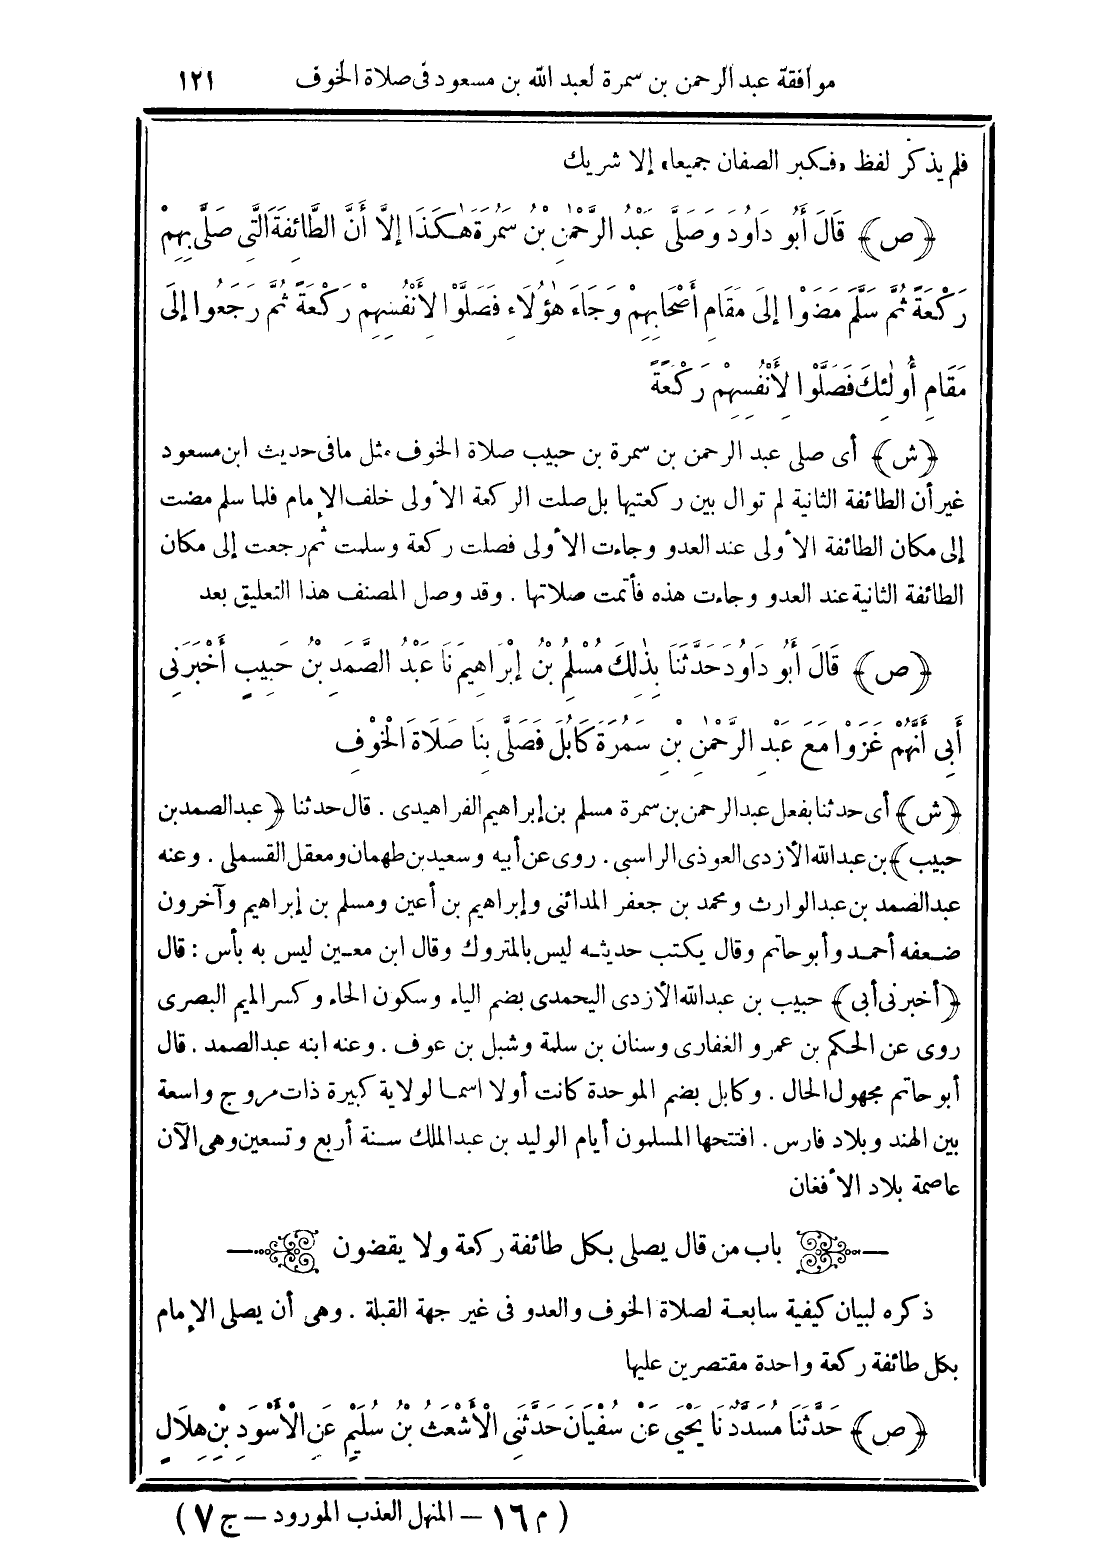 موافقة عبد الرحمن بن سمرة لعبد الله بن مسعود فى صلاة الخوف ١٢١
فلم يذكر لفظ «فكبر الصفان جميعا» إلا شريك
﴿ص﴾ قَالَ أَبُو دَاوُدَ وَصَلَّى عَبْدُ الرَّحْمٰنِ بْنُ سَمُرَةَ هٰكَذَا إِلَّا أَنَّ الطَّائِفَةَ الَّتِى صَلَّى بِهِمْ
رَكْعَةً ثُمَّ سَلَّمَ مَضَوْا إِلَى مَقَامِ أَصْحَابِهِمْ وَجَاءَ هٰؤُلَاءِ فَصَلَّوْا لِأَنْفُسِهِمْ رَكْعَةً ثُمَّ رَجَعُوا إِلَى
مَقَامِ أُولٰئِكَ فَصَلَّوْا لِأَنْفُسِهِمْ رَكْعَةً
﴿ش﴾ أى صلى عبد الرحمن بن سمرة بن حبيب صلاة الخوف مثل مافى حديث ابن مسعود
غير أن الطائفة الثانية لم توال بين ركعتيها بل صلت الركعة الأولى خلف الإمام فلما سلم مضت
إلى مكان الطائفة الأولى عند العدو وجاءت الأولى فصلت ركعة وسلمت ثم رجعت إلى مكان
الطائفة الثانية عند العدو وجاءت هذه فأتمت صلاتها . وقد وصل المصنف هذا التعليق بعد
﴿ص﴾ قَالَ أَبُو دَاوُدَ حَدَّثَنَا بِذٰلِكَ مُسْلِمُ بْنُ إِبْرَاهِيمَ نَا عَبْدُ الصَّمَدِ بْنُ حَبِيبٍ أَخْبَرَنِى
أَبِى أَنَّهُمْ غَزَوْا مَعَ عَبْدِ الرَّحْمٰنِ بْنِ سَمُرَةَ كَابُلَ فَصَلَّى بِنَا صَلَاةَ الْخَوْفِ
﴿ش﴾ أى حدثنا بفعل عبدالرحمن بن سمرة مسلم بن إبراهيم الفراهيدى . قال حدثنا ﴿عبدالصمد بن
حبيب﴾ بن عبدالله الأزدى العوذى الراسبى . روى عن أبيه وسعيد بن طهمان ومعقل القسملى . وعنه
عبدالصمد بن عبدالوارث ومحمد بن جعفر المدائنى وإبراهيم بن أعين ومسلم بن إبراهيم وآخرون
ضعفه أحمد وأبوحاتم وقال يكتب حديثه ليس بالمتروك وقال ابن معين ليس به بأس : قال
﴿أخبرنى أبى﴾ حبيب بن عبدالله الأزدى اليحمدى بضم الياء وسكون الحاء وكسر الميم البصرى
روى عن الحكم بن عمرو الغفارى وسنان بن سلمة وشبل بن عوف . وعنه ابنه عبدالصمد . قال
أبوحاتم مجهول الحال . وكابل بضم الموحدة كانت أولا اسما لولاية كبيرة ذات مروج واسعة
بين الهند وبلاد فارس . افتتحها المسلمون أيام الوليد بن عبدالملك سنة أربع وتسعين وهى الآن
عاصمة بلاد الأفغان
باب من قال يصلى بكل طائفة ركعة ولا يقضون
ذكره لبيان كيفية سابعة لصلاة الخوف والعدو فى غير جهة القبلة . وهى أن يصلى الإمام
بكل طائفة ركعة واحدة مقتصرين عليها
﴿ص﴾ حَدَّثَنَا مُسَدَّدٌ نَا يَحْيَى عَنْ سُفْيَانَ حَدَّثَنِى الْأَشْعَثُ بْنُ سُلَيْمٍ عَنِ الْأَسْوَدِ بْنِ هِلَالٍ
(م ١٦ – المنهل العذب المورود – ج ٧)